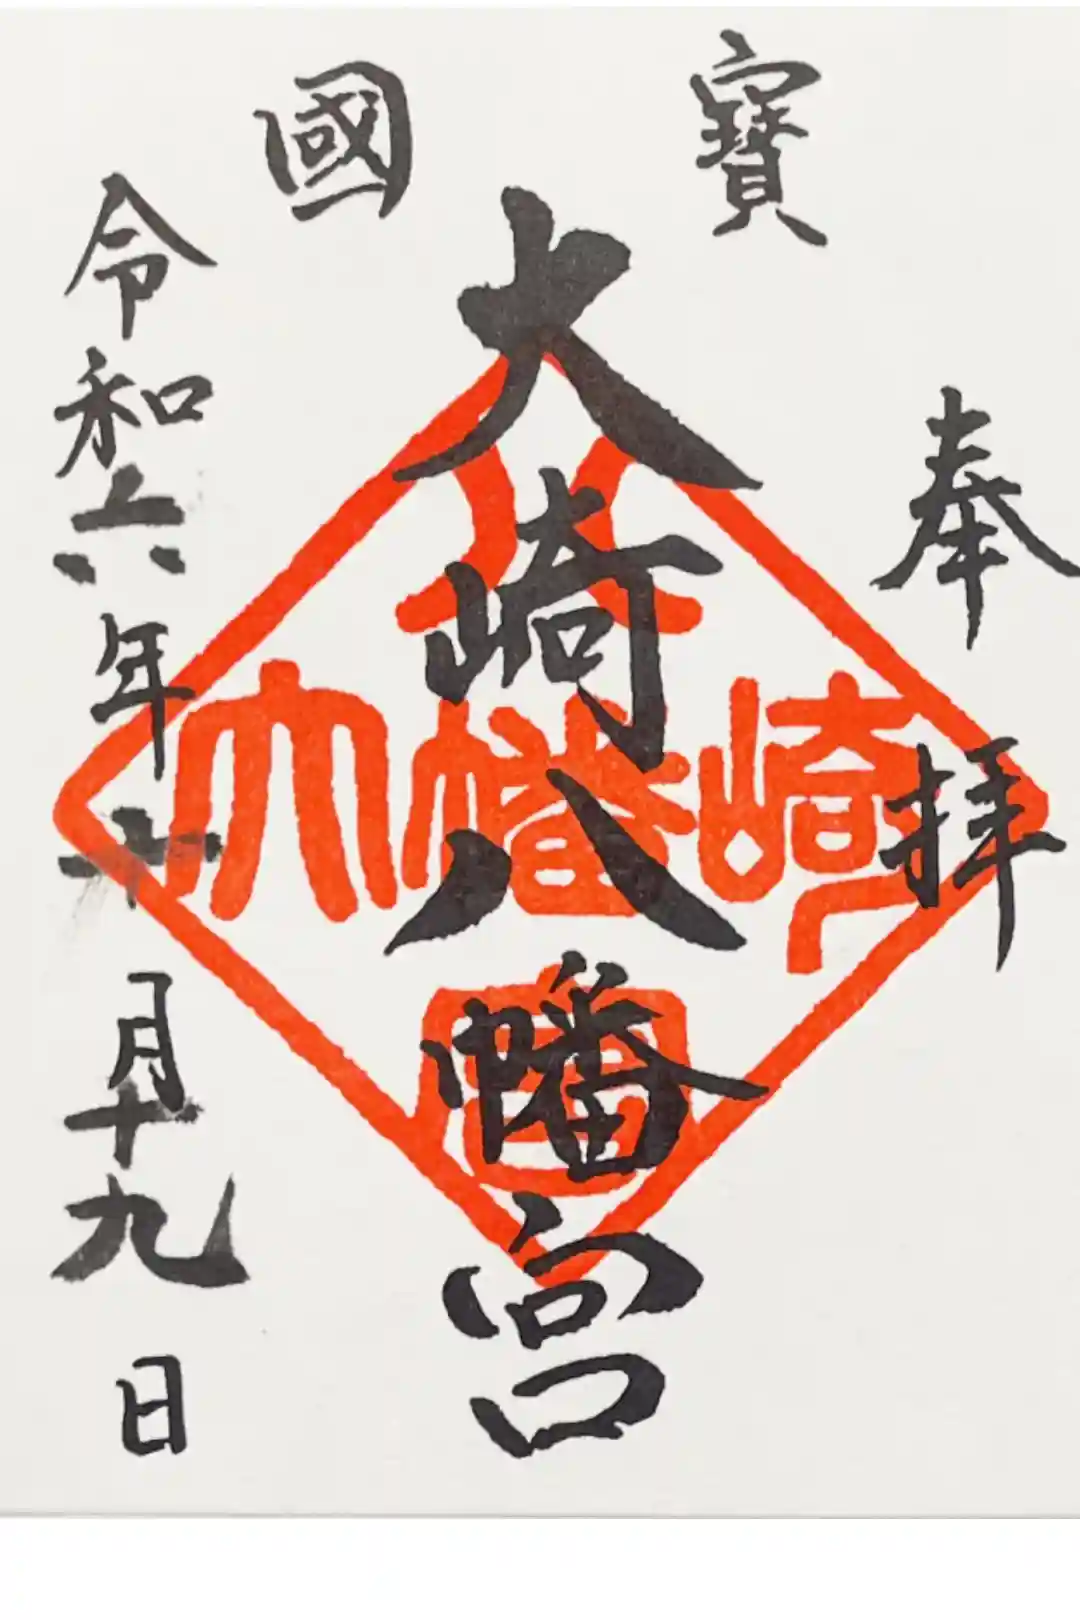 奉拝
寶國
大崎八幡宮
令和六年十月十九日
大崎八幡宮